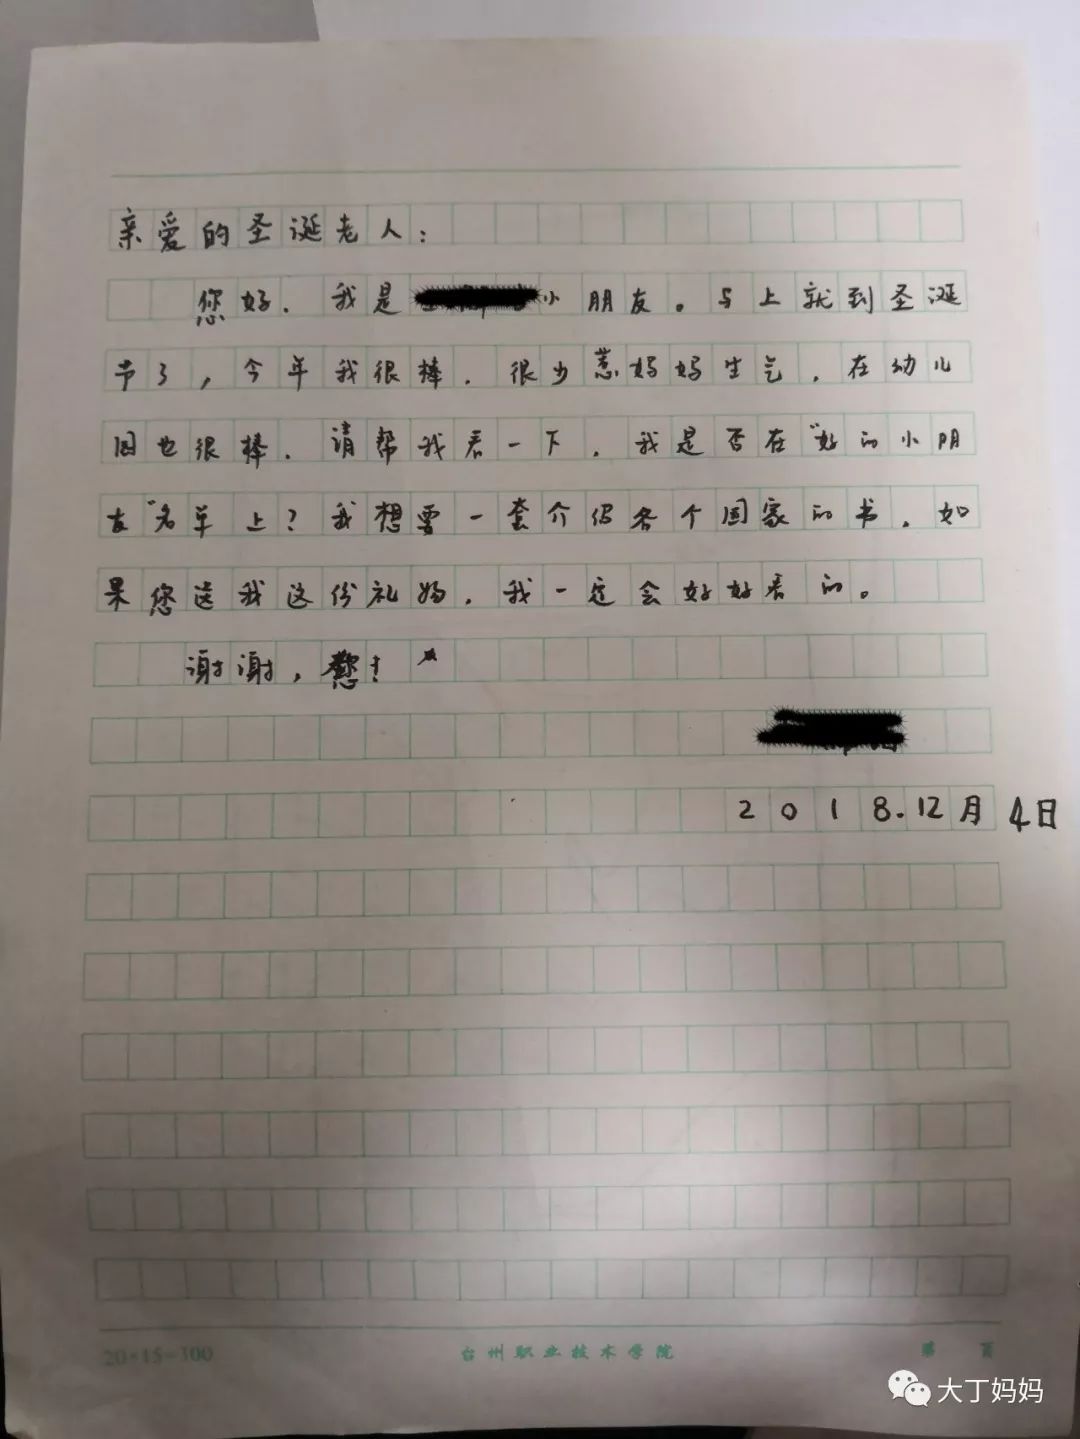 亲爱的圣诞老人：
您好．我是小朋友。马上就到圣诞
节了，今年我很棒．很少惹妈妈生气．在幼儿
园也很棒．请帮我看一下．我是否在“好的小朋
友”名单上？我想要一套介绍各个国家的书．如
果您送我这份礼物．我一定会好好看的。
谢谢，您！
2018.12月4日
20×15=300
台州职业技术学院
第 页
大丁妈妈